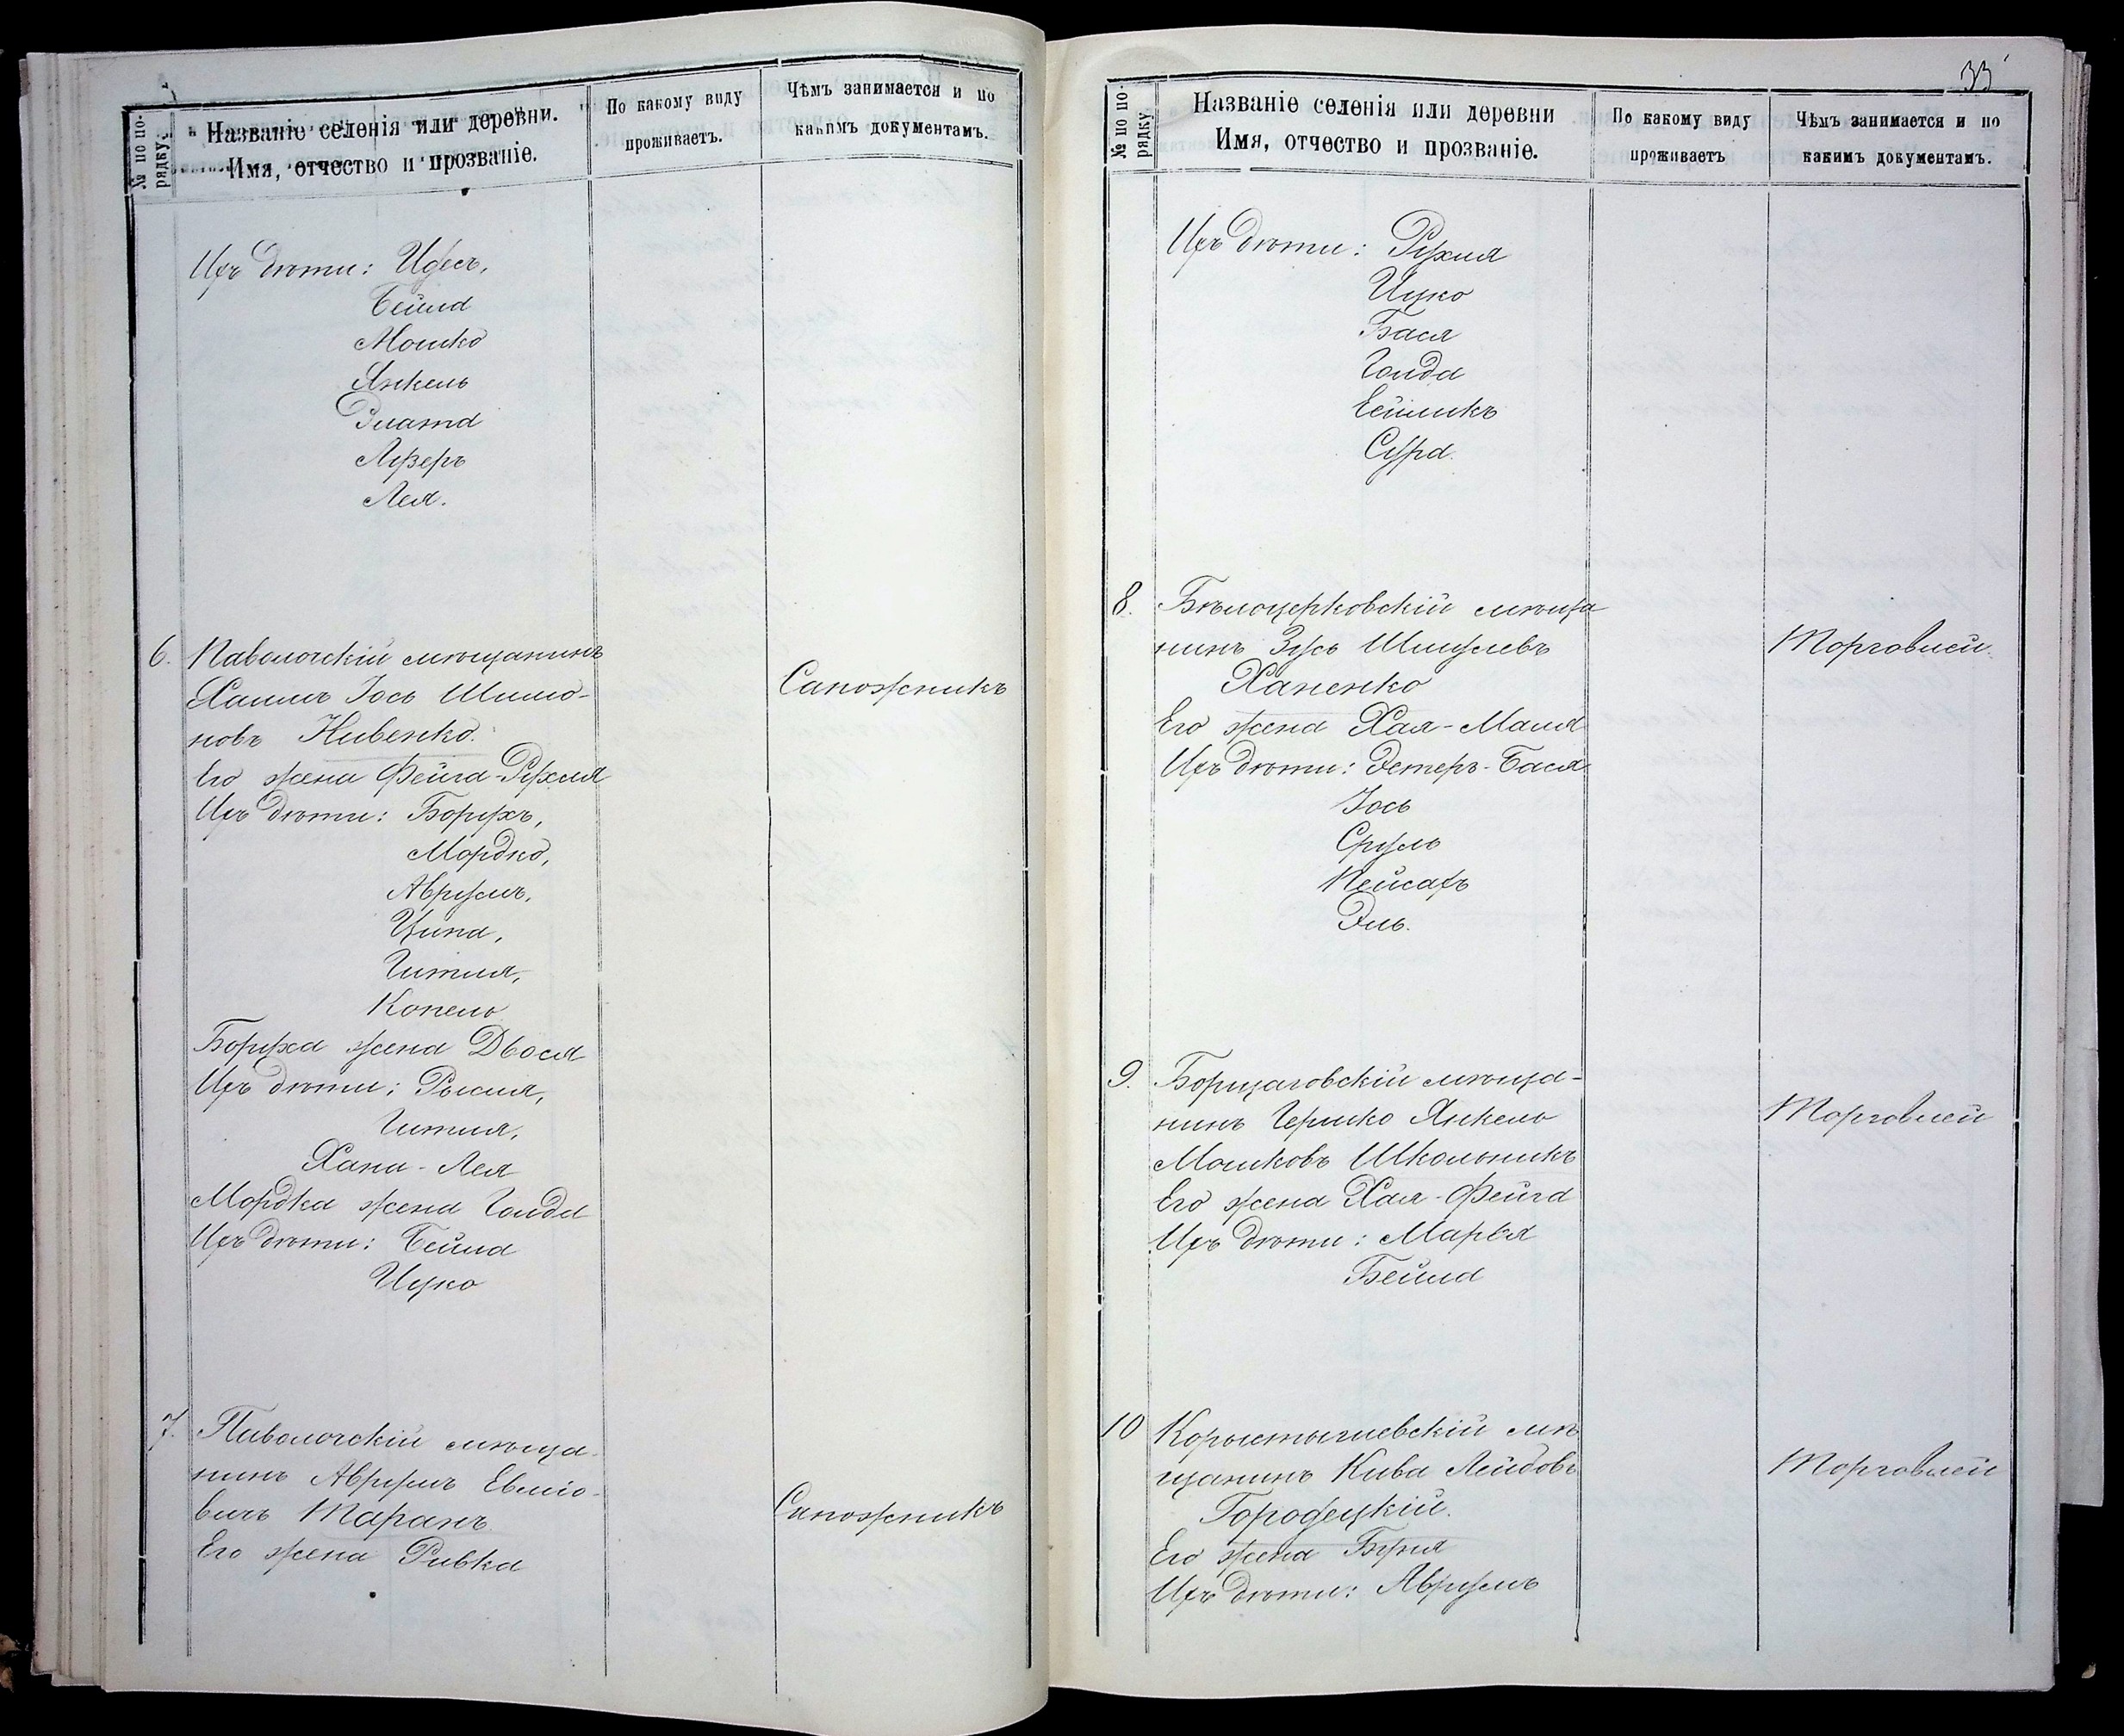 № по по-
рядку.
Названіе селенія или деревни.
Имя, отчество и прозваніе.
По какому виду
проживаетъ.
Чѣмъ занимается и по
какимъ документамъ.
Ихъ дѣти: Идесъ,
Бейла
Мошко
Янкель
Злата
Лузеръ
Лея.
6. Паволочскій мѣщанинъ
Хаимъ Іось Шимо-
новъ Нивенко.
Его жена Фейга-Рухля
Ихъ дѣти: Борухъ,
Мордко,
Аврумъ,
Ципа,
Гитля,
Копель
Боруха жена Двося
Ихъ дѣти: Рысля,
Гитля,
Хана-Лея
Мордка жена Голда
Ихъ дѣти: Бейла
Ицко
Сапожникъ
7. Паволочскій мѣща-
нинъ Аврумъ Евзіо-
вичъ Таранъ.
Его жена Ривка
Сапожникъ
33
№ по по-
рядку
Названіе селенія или деревни
Имя, отчество и прозваніе.
По какому виду
проживаетъ
Чѣмъ занимается и по
какимъ документамъ.
Ихъ дѣти: Рухля
Ицко
Бася
Голда
Сура.
8. Бѣлоцерковскій мѣща
нинъ Зусь Шмулевъ
Хапенко
Его жена Хая-Маля
Ихъ дѣти: Эстеръ-Бася
Іось
Сруль
Пейсахъ
Эль.
Торговлей.
9. Борщаговскій мѣща-
нинъ Гершко Янкель
Мошковъ Школьникъ
Его жена Хая-Фейга
Ихъ дѣти: Марья
Бейла
Торговлей
10 Коростышевскій мѣ
щанинъ Кива Лейбовъ
Городецкій.
Его жена Буня
Ихъ дѣти: Аврумъ
Торговлей